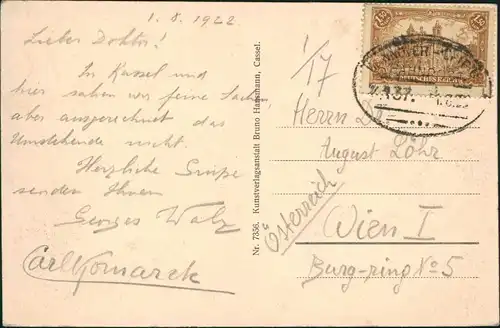 1. 8. 1922
Lieber Doktor!
In Kassel und
hier sahen wir feine Sachen,
aber ausgerechnet das
Umstehende nicht.
Herzliche Grüße
senden Ihnen
Georges Walz
Carl Komarek
Nr. 7356. Kunstverlagsanstalt Bruno Hansmann, Cassel.
Herrn Dr.
August Löhr
Österreich
Wien I
Burg-ring No 5